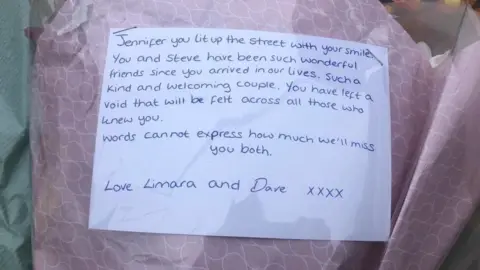 Jennifer you lit up the street with your smile.
You and Steve have been such wonderful
friends since you arrived in our lives. Such a
kind and welcoming couple. You have left a
void that will be felt across all those who
knew you.
Words cannot express how much we'll miss
you both.
Love Limara and Dave xxxx